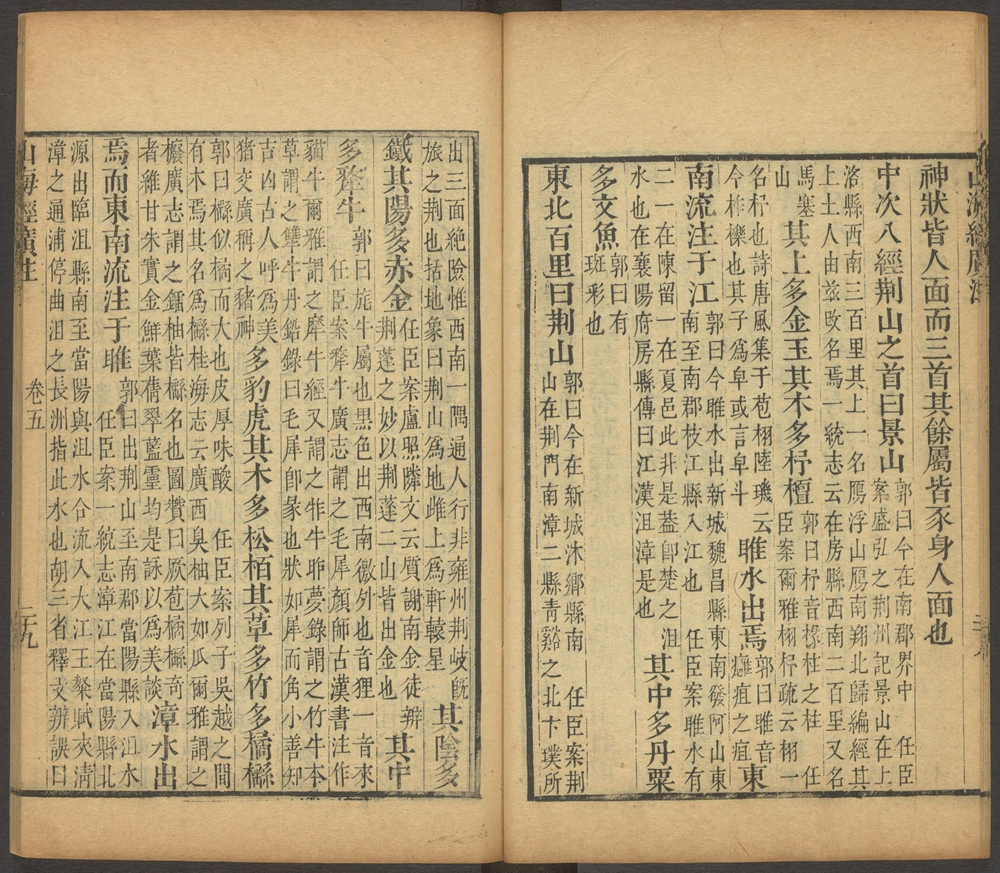 神狀皆人面而三首其餘屬皆豕身人面也
中次八經荆山之首曰景山
郭曰今在南郡界中　任臣
案盛弘之荆州記景山在上
洛縣西南三百里其上一名鴈浮山鴈南翔北歸編經其
上土人由兹改名焉一統志云在房縣西南二百里又名
馬塞
山
其上多金玉其木多杼檀
郭曰杼音椽柱之柱　任
臣案爾雅栩杼疏云栩一
名杼也詩唐風集于苞栩陸璣云
今柞櫟也其子爲皁或言皁斗
雎水出焉
郭曰雎音
癰疽之疽
東
南流注于江
郭曰今雎水出新城魏昌縣東南發阿山東
南至南郡枝江縣入江也　任臣案雎水有
二一在陳留一在夏邑此非是葢卽楚之沮
水也在襄陽府房縣傳曰江漢沮漳是也
其中多丹粟
多文魚
郭曰有
斑彩也
東北百里曰荆山
郭曰今在新城沐鄉縣南　任臣案荆
山在荆門南漳二縣靑谿之北卞璞所
出三面絶險惟西南一隅通人行非雍州荆岐旣
旅之荆也括地象曰荆山爲地雌上爲軒轅星
其陰多
鐵其陽多赤金
任臣案盧照隣文云質謝南金徒辨
荆蓬之妙以荆蓬二山皆出金也
其中
多犛牛
郭曰旄牛屬也黒色出西南徼外也音狸一音來
任臣案犛牛廣志謂之毛犀顏師古漢書注作
貓牛爾雅謂之犘牛經又謂之㸲牛昨夢錄謂之竹牛本
草謂之犨牛丹鉛錄曰毛犀卽彖也狀如犀而角小善知
吉凶古人呼爲美
猪交廣稱之猪神
多豹虎其木多松栢其草多竹多橘櫾
郭曰櫾似橘而大也皮厚味酸　任臣案列子吳越之間
有木焉其名爲櫾桂海志云廣西臭柚大如瓜爾雅謂之
櫠廣志謂之鐳柚皆櫾名也圖贊曰厥苞橘櫾奇
者維甘朱實金鮮葉蒨翠藍靈均是詠以爲美談
漳水出
焉而東南流注于雎
郭曰出荆山至南郡當陽縣入沮水
任臣案一統志漳江在當陽縣北
源出臨沮縣南至當陽與沮水合流入大江王粲賦夾淸
漳之通浦停曲沮之長洲指此水也胡三省釋文辨誤曰
山海經廣註
卷五
二十九